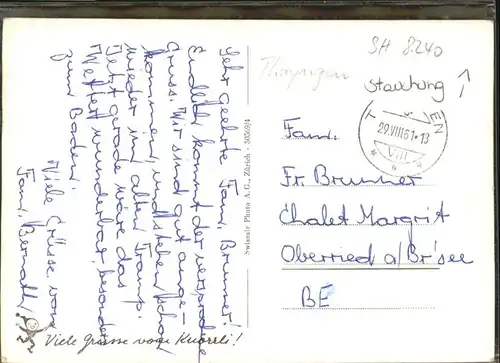 SH 8240
Thayngen
Stauchung
29.VIII 61-13
VIII
Sehr geehrte Fam. Brunner!
Endlich kommt der versprochene
Gruss. Wir sind gut ange-
kommen, und stehen schon
wieder im alten Tramp.
Jetzt gerade wäre das
Wetter wunderbar, besonders
zum Baden!
Viele Grüsse von
Fam.
Viele Grüsse vom
Swissair Photo A. G., Zürich - 50569/4
Fam.
Fr. Brunner
Chalet Margrit
Oberried a/Br'see
BE